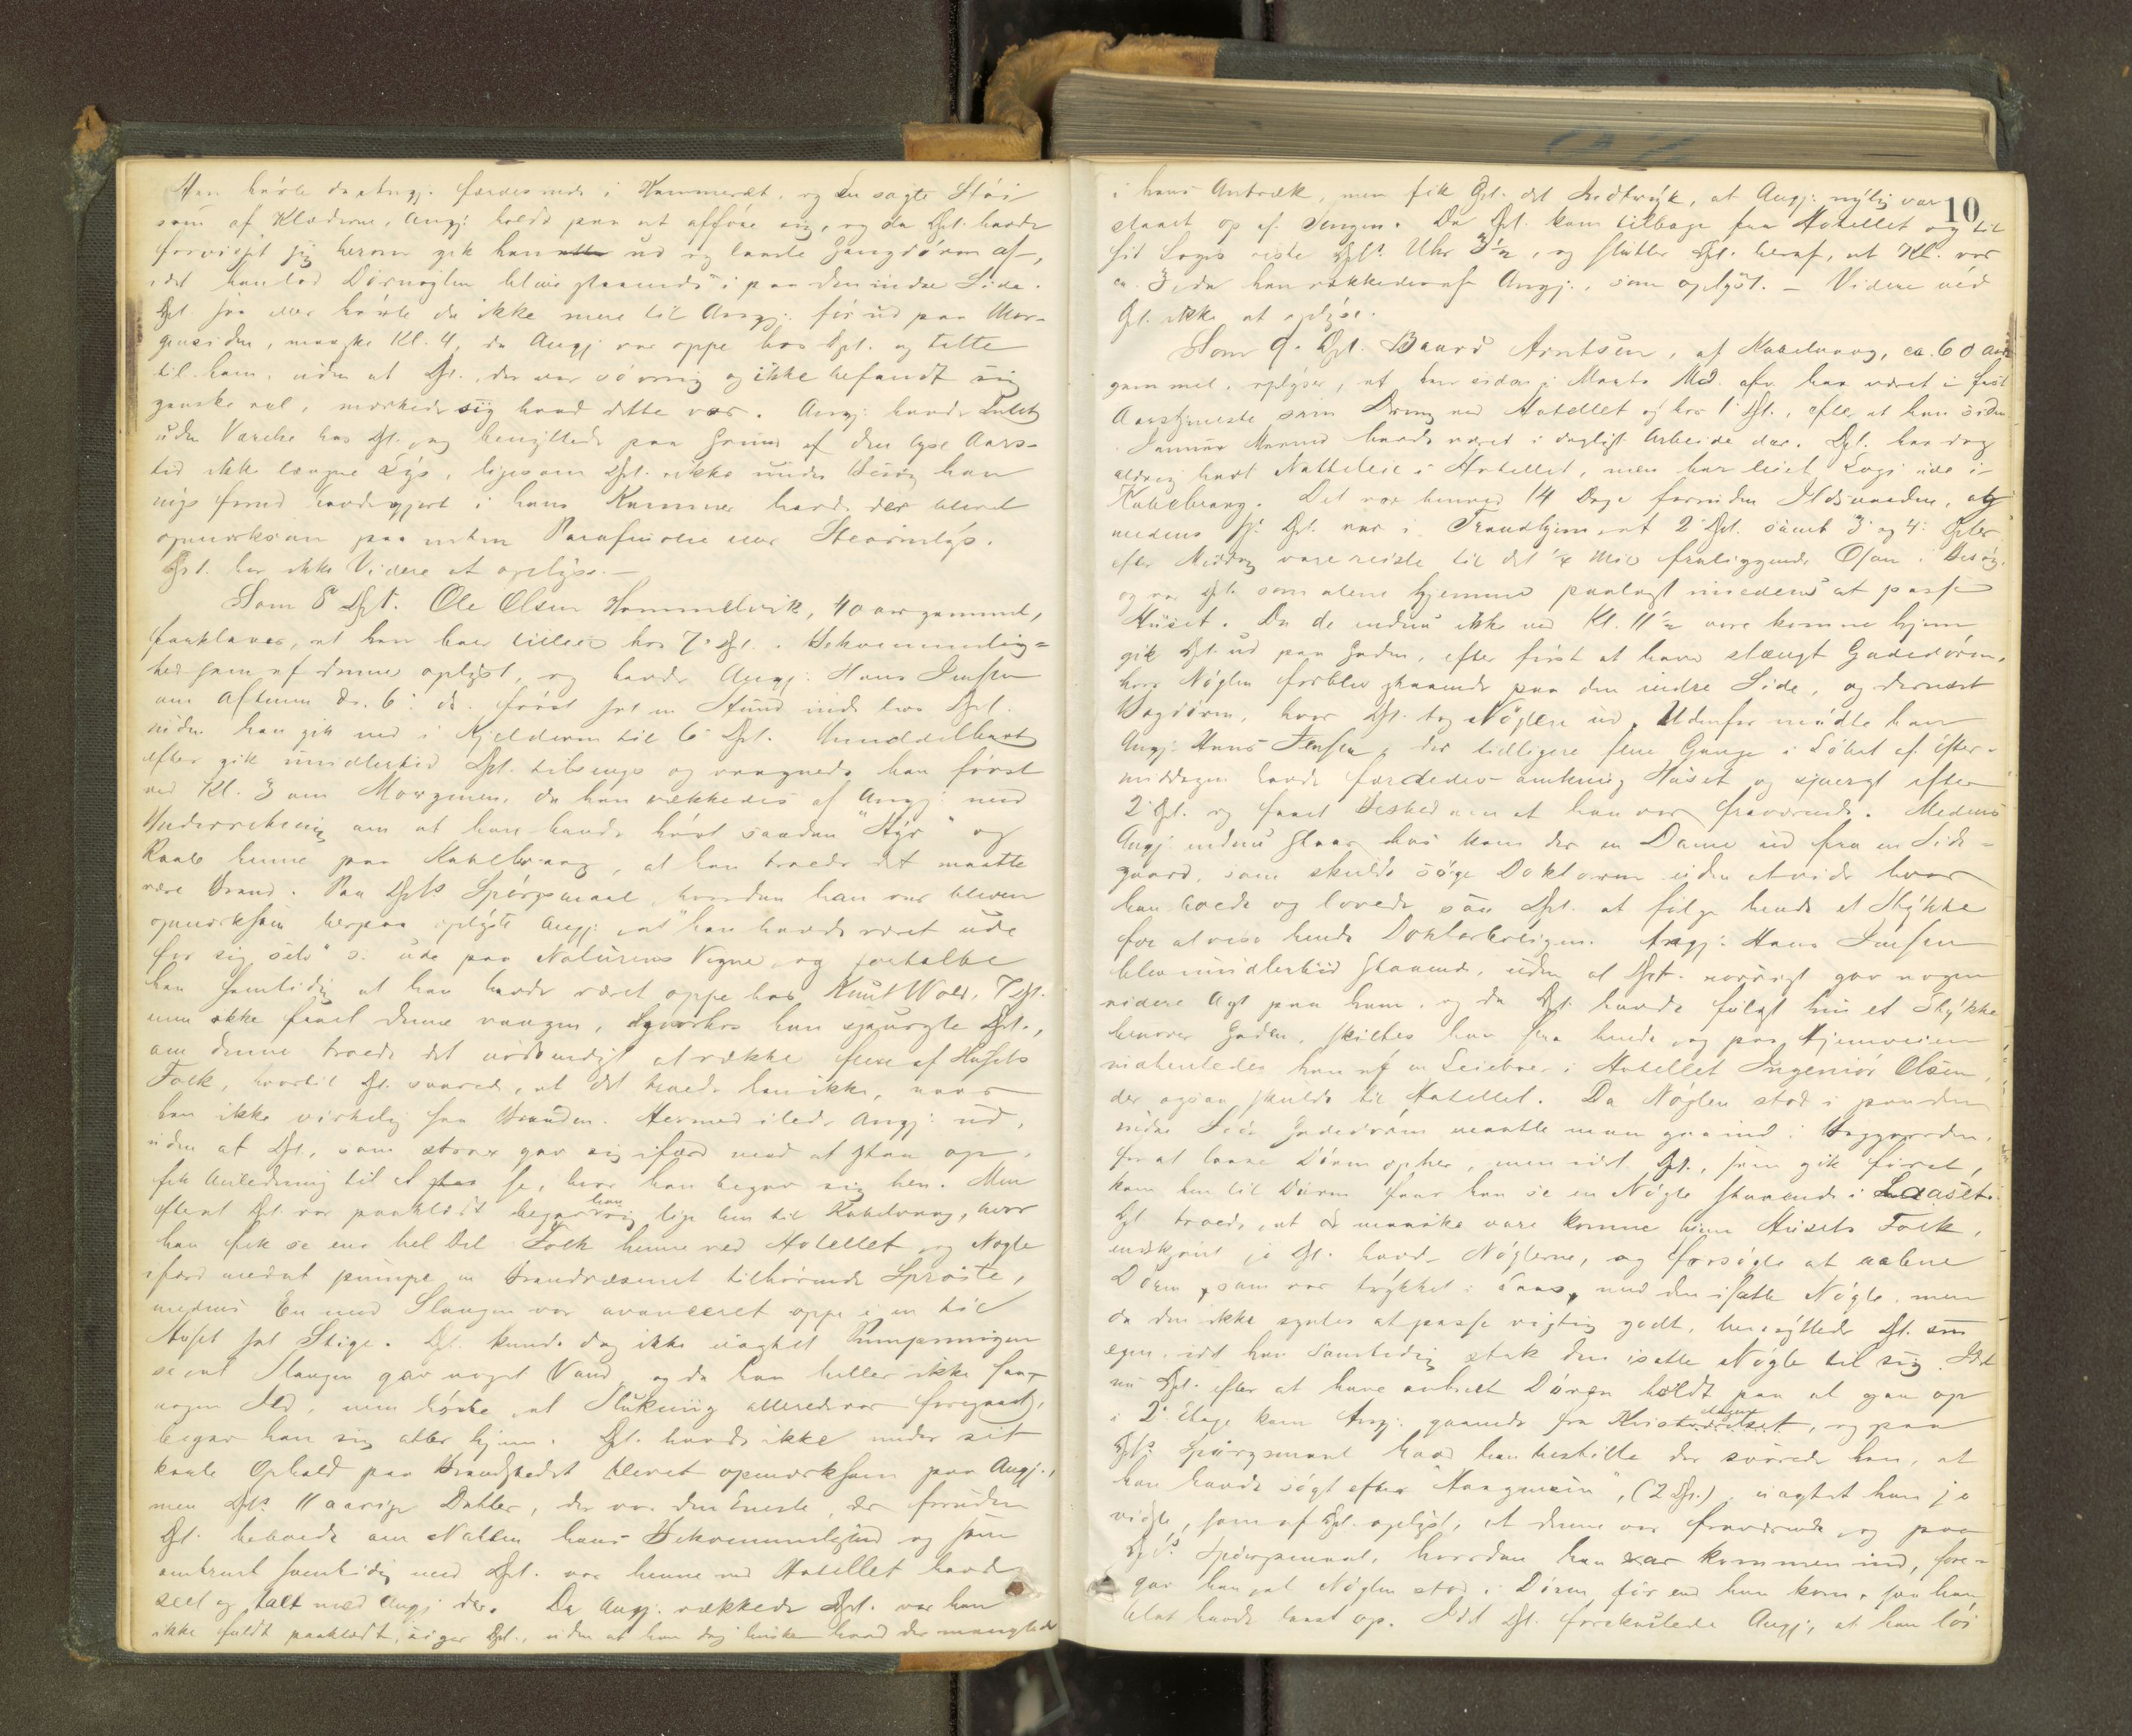 Han hørte da at Angj. færdes inde i Kammeret, og en sagte Støi
som af Klæderne, Angj: holdt paa at afføre sig, og da Dpt. havde
forvisset sig herom gik han ud og laaste Gangdøren af,
idet han lod Dørnøglen blive staaende i paa den indre Side.
Dpt. saa eller hørte da ikke mere til Angj: før ud paa Mor-
gensiden, maaske Kl. 4, da Angj var oppe hos Dpt. og talte
til ham, uden at Dpt., der var søvnig og ikke befandt sig
ganske vel, mærkede sig hvad dette var. Angj: havde
uden Varche hos Dpt. og benyttede paa Grund af den lyse Aars-
tid ikke længere Lys, ligesom Dpt. ikke under Besøg han
nys forud havde gjort i hans Kammer havde der blevet
opmærksom paa enten Parafinolie eller Stearinlys.
Dpt. har ikke Videre at oplyse. —
Som 8 Dpt. Ole Olsen Hommelvik, 40 aar gammel,
forklarer, at han bor tilleie hos 7de Dpt. i Bekvemmelig-
hed som af denne oplyst, og havde Angj: Hans Jensen
om Aftenen d. 6: ds. først sat en Stund inde hos Dpt.
siden han gik ned i Kjelderen til 6 Dpt. Umiddelbart
efter gik imidlertid Dpt. tilsengs og vaagnede han først
ved Kl. 3 om Morgenen, da han vækkedes af Angj: med
Underretning om at han havde hørt saadan "Styr" og
Raab henne paa Kabelvaag, at han troede det maatte
være Brand. Paa Dpts Spørgsmaal hvordan han var bleven
opmærksom herpaa oplyste Angj: at "han havde været ude
for sig selv" ɔ: ude paa Naturens Vegne, og fortalte
han samtidig at han havde været oppe hos Knut Wold, 7 Dpt.
men ikke faaet denne vaagen, hvorhos han spurgte Dpt.,
om denne troede det nødvendigt at vække flere af Husets
Folk, hvortil Dpt. svarede, at det troede han ikke, naar
han ikke virkelig saa Branden. Hermed ilede Angj: ud,
uden at Dpt., som strax gav sig ifærd med at staa op,
fik Anledning til at se, hvor han begav sig hen. Men
efterat Dpt. var paaklædt begav han sig lige hen til Kabelvaag, hvor
han fik se en hel Del Folk henne ved Hotellet og Nogle
ifærd med at pumpe en Brandvæsenet tilhørende Sprøite,
medens En med Slangen var avanceret oppe i en til
Huset sat Stige. Dpt. kunde dog ikke uagtet Pumpningen
se at Slangen gav noget Vand, og da han heller ikke saa
nogen Ild, men hørte, at Slukning allerede var foregaaet,
begav han sig atter hjem. Dpt. havde ikke under sit
korte Ophold paa Brandstedet blevet opmærksom paa Angj.,
men Dpts 11 aarige Datter, der var den Eneste, der foruden
Dpt. beboede om Natten hans Bekvemmelighed og som
omtrent samtidig med Dpt. var henne ved Hotellet havde
seet og talt med Angj der. Da Angj. vækkede Dpt. var han
ikke fuldt paaklædt, siger Dpt., uden at han dog husker hvad der manglede
10
i hans Antræk, men fik Dpt. det Indtryk, at Angj. nylig var
staaet op af Sengen. Da Dpt. kom tilbage fra Hotellet og til
sit Logis viste Dpts. Uhr 3½, og slutter Dpt. heraf, at Kl. var
ca. 3 da han vækkedes af Angj., som oplyst. — Videre véd
Dpt. ikke at oplyse.
Som 9. Dpt. Baard Arntsen, af Kabelvaag, ca. 60 aar
gammel, oplyser, at han siden i Marts Md. afv. har været i fast
Aarstjeneste som Dreng ved Hotellet og hos 1 Dpt., efter at han siden
Januar Maaned havde været i dagligt Arbeide der. Dpt. har dog
aldrig havt Natteleie i Hotellet, men har leiet Logi ude i
Kabelvaag. Det var henved 14 Dage forinden Ildsvaaden, og
medens 1: Dpt. var i Trondhjem, at 2 Dpt. samt 3: og 4: Dpter
efter Middag vare reiste til det ¼ Mil fraliggende Osan i Besøg,
og var Dpt. som alene hjemme paalagt imedens at passe
Huset. Da de endnu ikke ved Kl. 11½ vare komne hjem
gik Dpt. ud paa Gaden, efter først at have stængt Gadedøren,
hvis Nøglen forblev staaende paa den indre Side, og dernæst
Bagdøren, hvor Dpt. tog Nøglen ud. Udenfor mødte han
Angj: Hans Jensen, der tidligere flere Gange i Løbet af Efter-
middagen havde færdedes omkring Huset og spurgt efter
2 Dpt. og faaet Besked om at han var fraværende. Medens
Angj: endnu staar hos kom der en Dame ud fra en Side-
gaard, som skulde søge Doktoren uden at vide hvor
han boede og lovede saa Dpt. at følge hende et Stykke
for at vise hende Doktorboligen. Angj: Hans Jensen
blev imidlertid staaende, uden at Dpt. navrigt gav nogen
videre Agt paa ham, og da Dpt. havde fulgt hin et Stykke
henover Gaden, skiltes han fra hende og paa Hjemveien
indhentedes han af en Leieboer i Hotellet Ingeniør Olsen,
der ogsaa skulde til Hotellet. Da Nøglen stod i paa den
indre Side Gadedøren maatte man gaa ind i Baggaarden,
for at laase Døren op her, men idet Dpt., som gik først,
kom hen til Døren faar han se en Nøgle staaende i Laaset.
Dpt. troede, at de maaske vare komne hjem Husets Folk,
endskjønt jo Dpt. havde Nøglerne, og forsøgte at aabne
Døren, som var trykket i Laas, med den isatte Nøgle, men
da den ikke syntes at passe rigtig godt, benyttede Dpt. sin
egen, idet han samtidig stak den isatte Nøgle til sig. Idet
nu Dpt. efter at have aabnet Døren holdt paa at gaa op
i 2: Etage kom Angj. gaaende fra, og paa
Dpts Spørgsmaal hvad han bestilte der svarede han, at
han havde søgt efter "Aangensen", (2 Dpt.), uagtet han jo
vidste, som af Dpt. oplyst, at denne var fraværende og paa
Dpts. Spørgsmaal, hvordan han var kommen ind, fore-
gav han at Nøglen stod i Døren før end han kom, saa han
blot havde laast op. Idet Dpt. forekastede Angj., at han løi